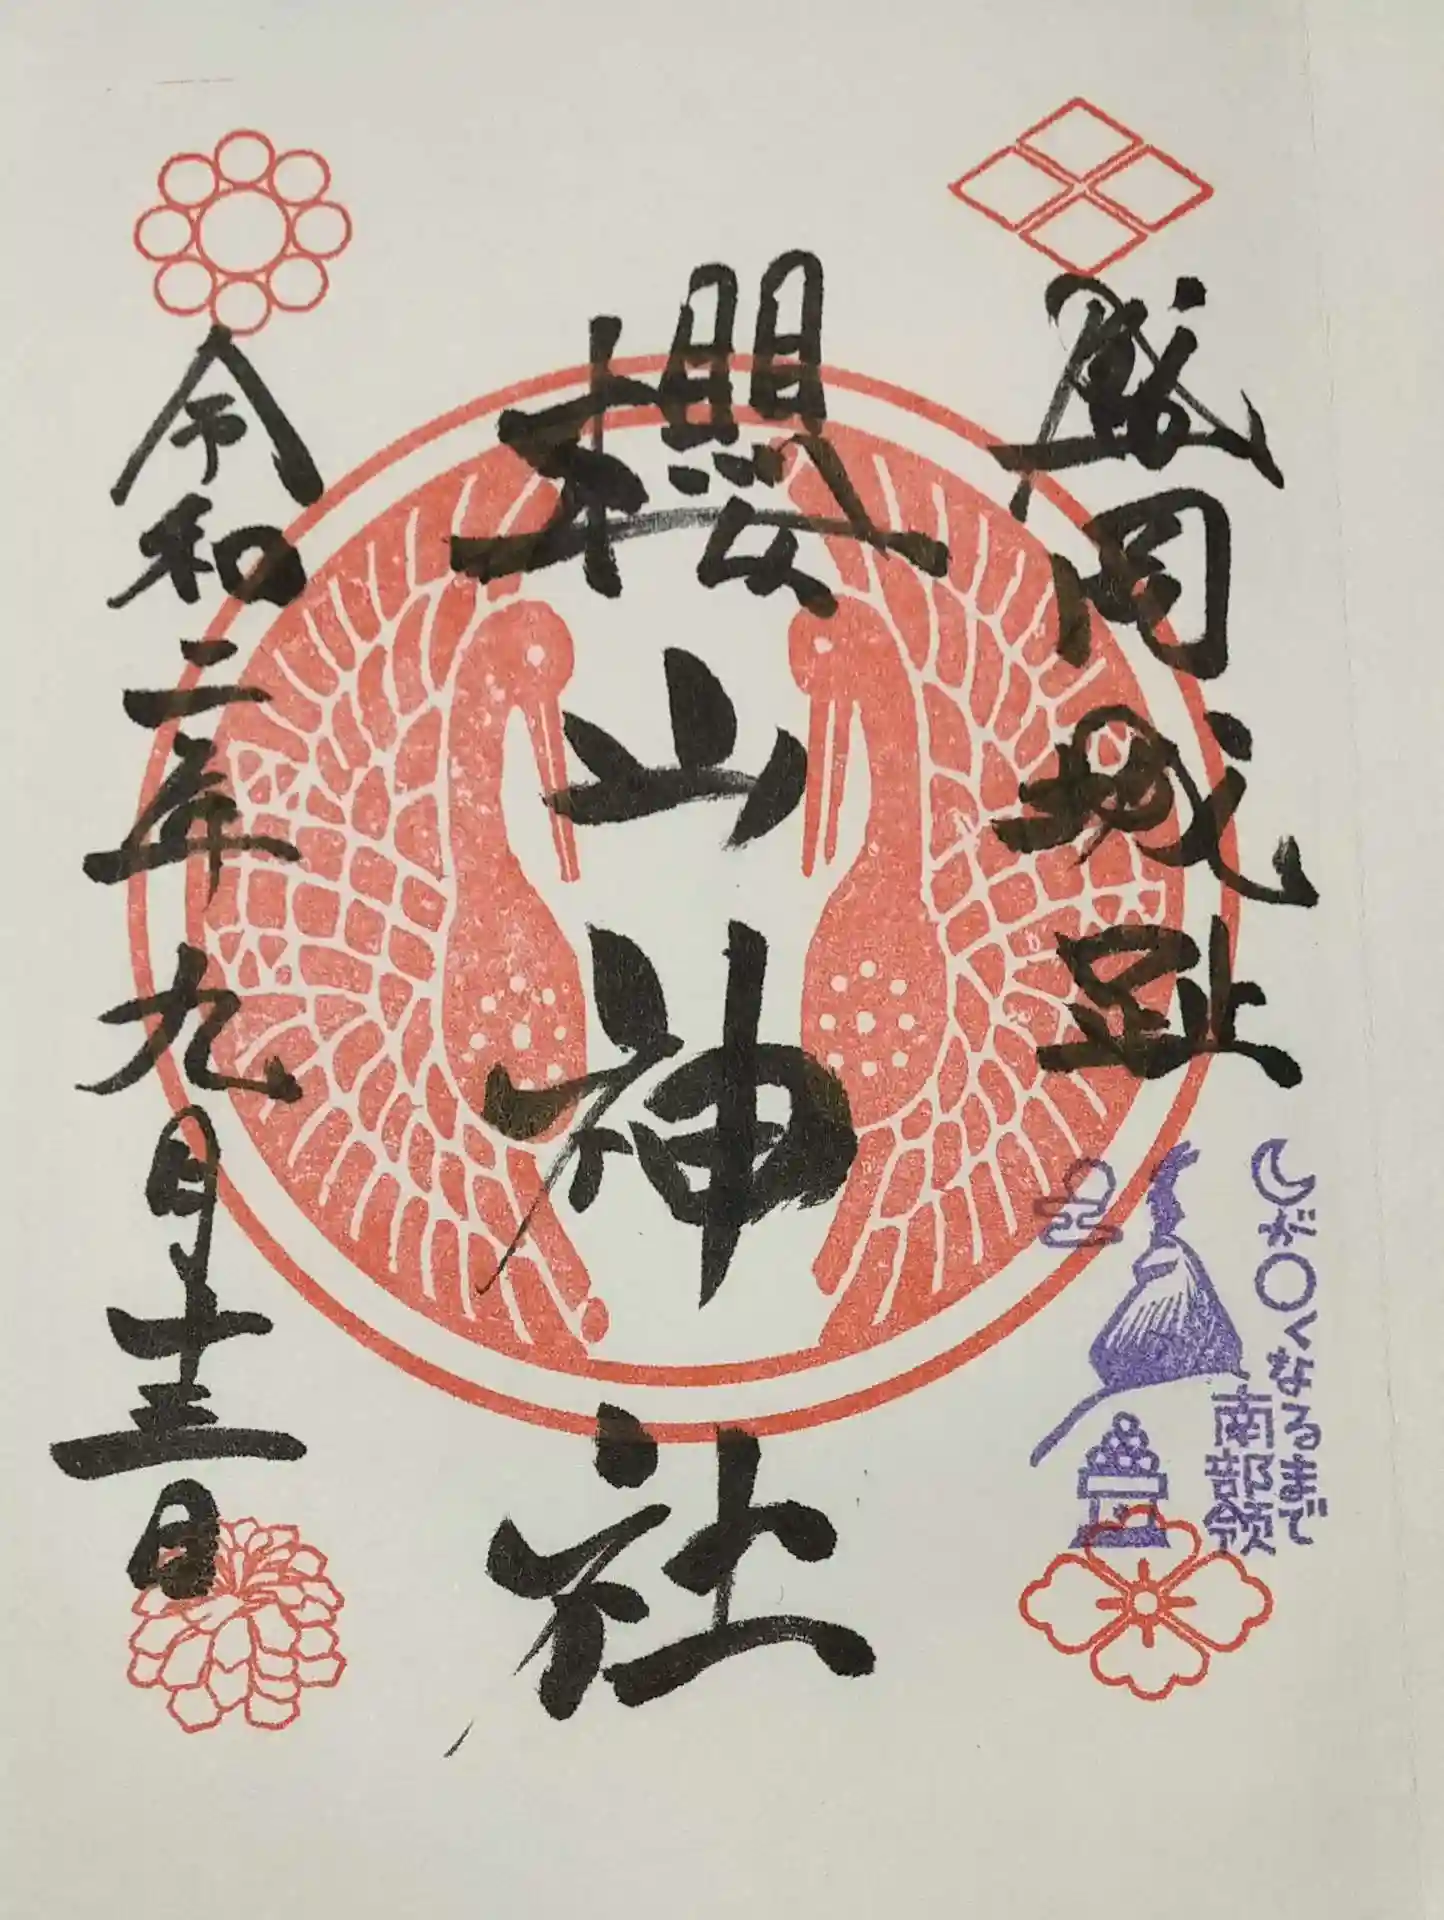 盛岡城趾
櫻山神社
令和二年九月十三日
が〇くなるまで
南部領